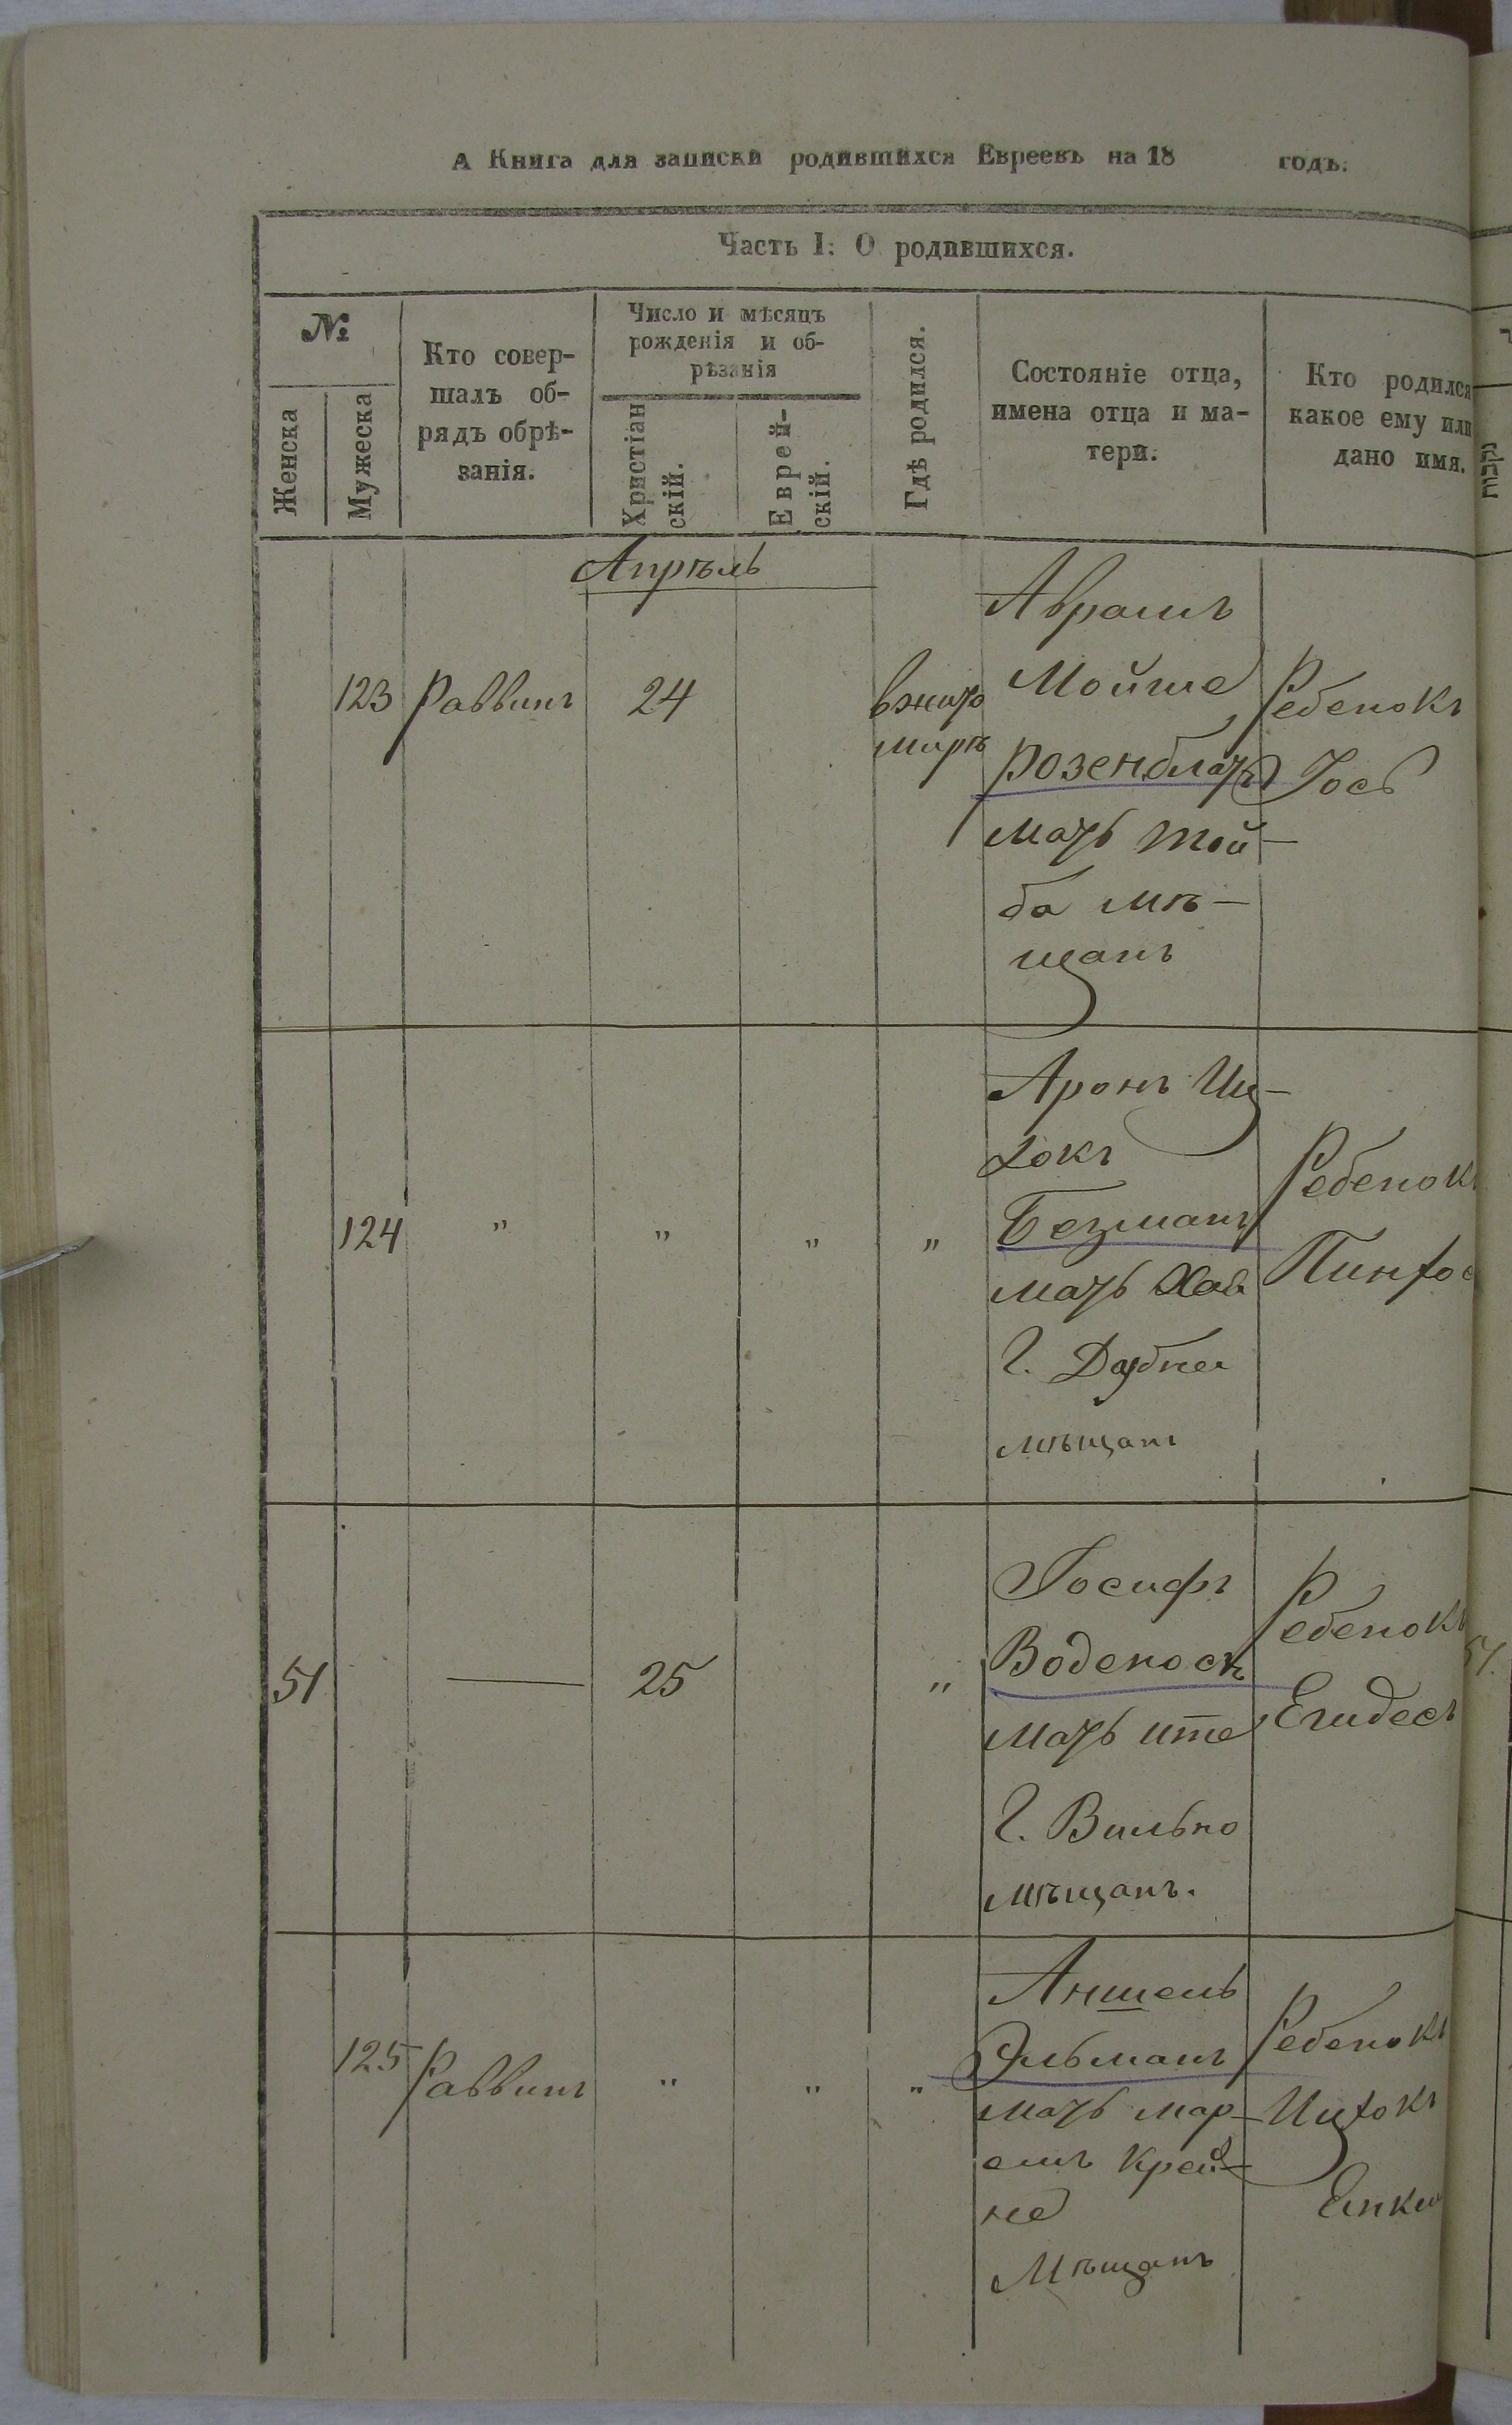 А Книга для записки родившихся Евреевъ на 18 годъ.
Часть I: О родившихся.
№
Женска
Мужеска
Кто совер-
шалъ об-
рядъ обрѣ-
занія.
Число и мѣсяцъ
рожденія и об-
рѣзанія
Христіан
скій.
Еврей-
скій.
Гдѣ родился.
Состояніе отца,
имена отца и ма-
тери.
Кто родился
какое ему или
дано имя.
Апрѣль
123
Раввинъ
24
въ жито
мирѣ
Аврамъ
Мойше
Розенблатъ
мать Той-
ба мѣ-
щанъ
Ребенокъ
Іось
124
"
"
"
"
Аронъ Иц-
хокъ
Безманъ
мать Хая
г. Дубна
мѣщанъ
Ребенокъ
Пинхос
51
25
"
Іосифъ
Воденоск
мать ите
г. Вильно
мѣщанъ.
Ребенокъ
Егидесъ
125
Раввинъ
"
"
"
Аншель
Эльманъ
мать мар-
емъ Крей-
не
Мѣщанъ
Ребенокъ
Ицхокъ
נקבות
51.